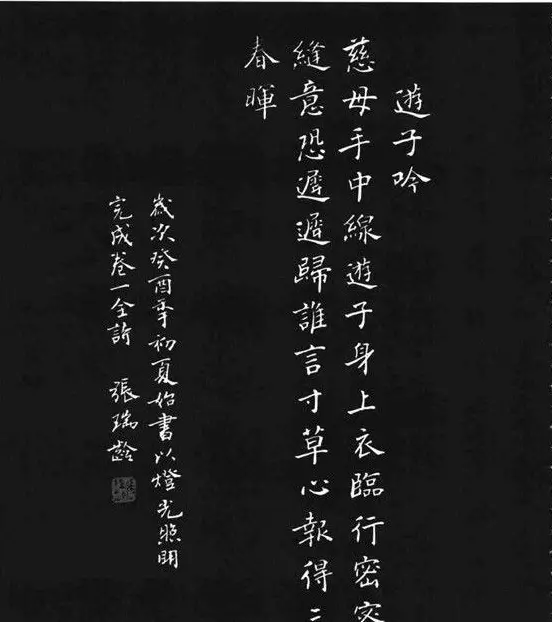 遊子吟
慈母手中線遊子身上衣臨行密密
縫意恐遲遲歸誰言寸草心報得三
春暉
歲次癸酉年初夏始書以燈光照明
完成卷一全詩 張瑞齡